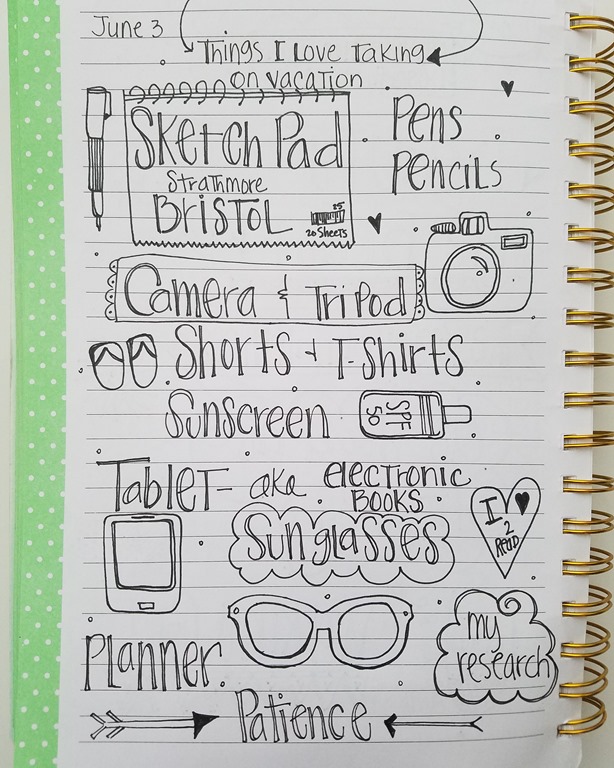 June 3
Things I Love Taking
on vacation
Sketch Pad
Strathmore
Bristol
25
20 Sheets
Pens
Pencils
Camera & Tripod
Shorts + T-Shirts
Sunscreen
SPF
50
Tablet - aka electronic
BOOKS
I ♥
2
READ
Sunglasses
my
research
Planner
Patience